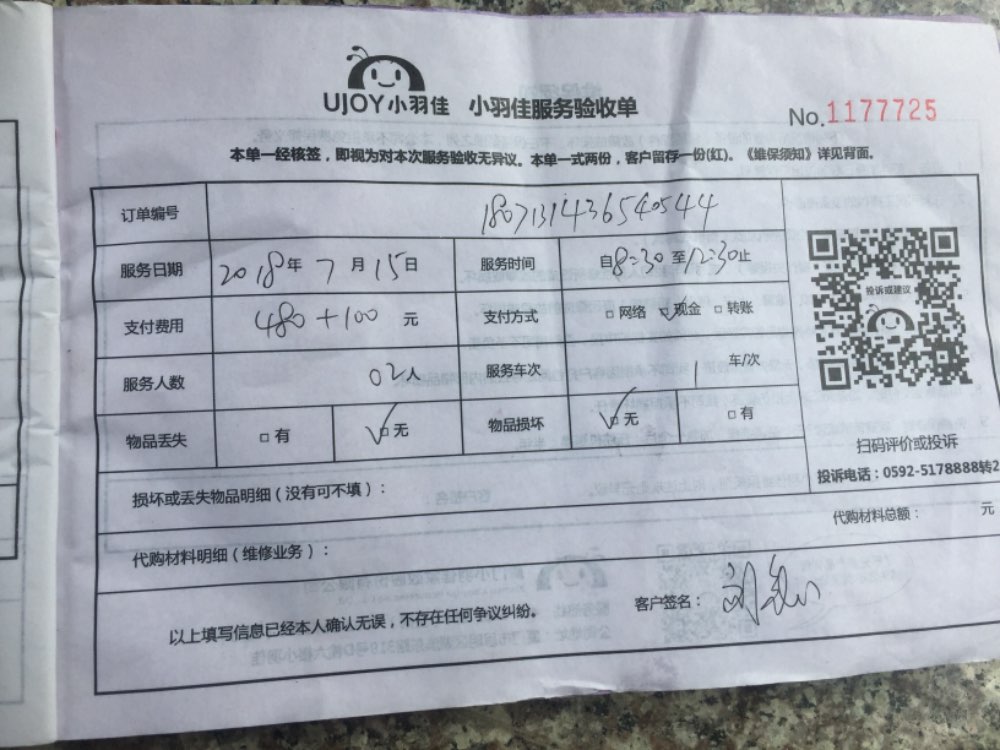 UJOY小羽佳 小羽佳服务验收单
No.1177725
本单一经核签，即视为对本次服务验收无异议。本单一式两份，客户留存一份(红)。《维保须知》详见背面。
订单编号 1807131436540544
服务日期 2018年7月15日 服务时间 自8:30至12:30止
投诉或建议
支付费用 480+100 元 支付方式 □网络 ☑现金 □转账
服务人数 02人 服务车次 1 车/次
物品丢失 □有 ☑无 物品损坏 ☑无 □有
扫码评价或投诉
投诉电话：0592-5178888转2
损坏或丢失物品明细（没有可不填）：
代购材料总额： 元
代购材料明细（维修业务）：
以上填写信息已经本人确认无误，不存在任何争议纠纷。 客户签名：